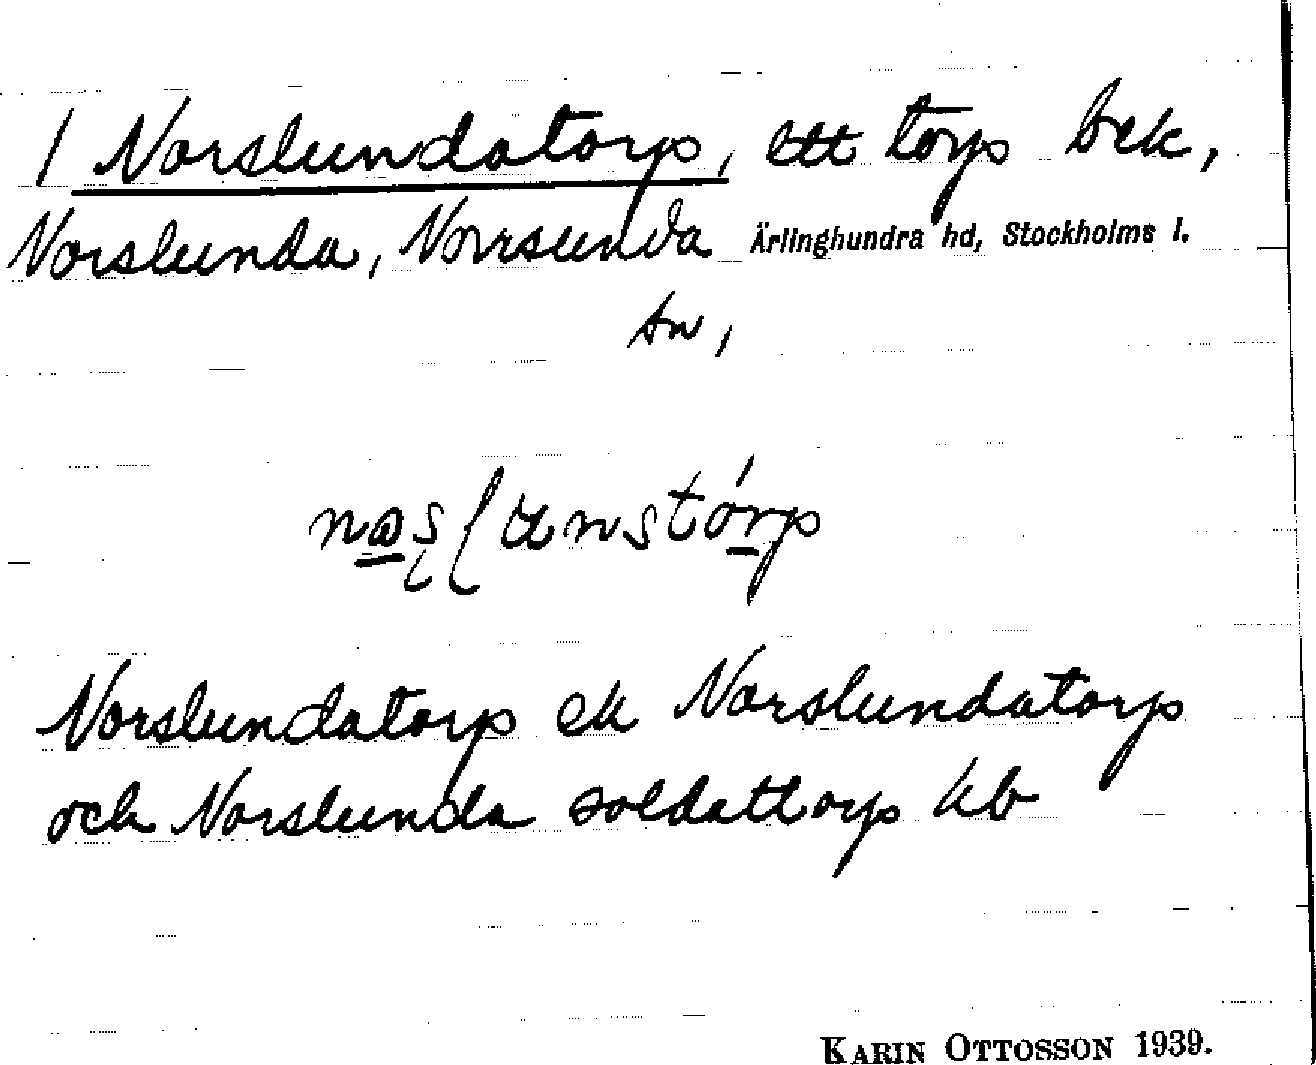 / Norslundatorp, ett torp bek,
Norslunda, Norrsunda Ärlinghundra hd, Stockholms l.
sn,
Norslundatorp ek Norslundatorp
och Norslunda soldattorp kb
KARIN OTTOSSON 1939.